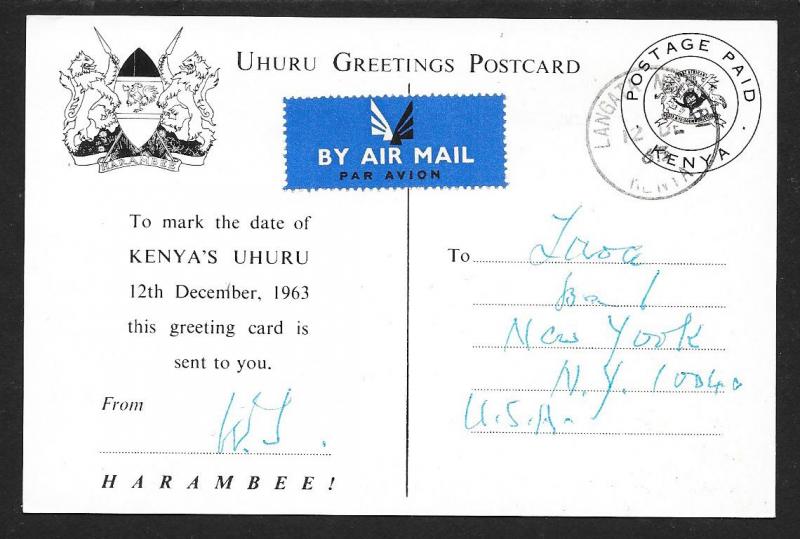 UHURU GREETINGS POSTCARD
HARAMBEE
BY AIR MAIL
PAR AVION
POSTAGE PAID
KENYA
12 DE
KENYA
To mark the date of
KENYA'S UHURU
12th December, 1963
this greeting card is
sent to you.
From
HARAMBEE!
To
New Yook
N.Y. 10040
U.S.A.